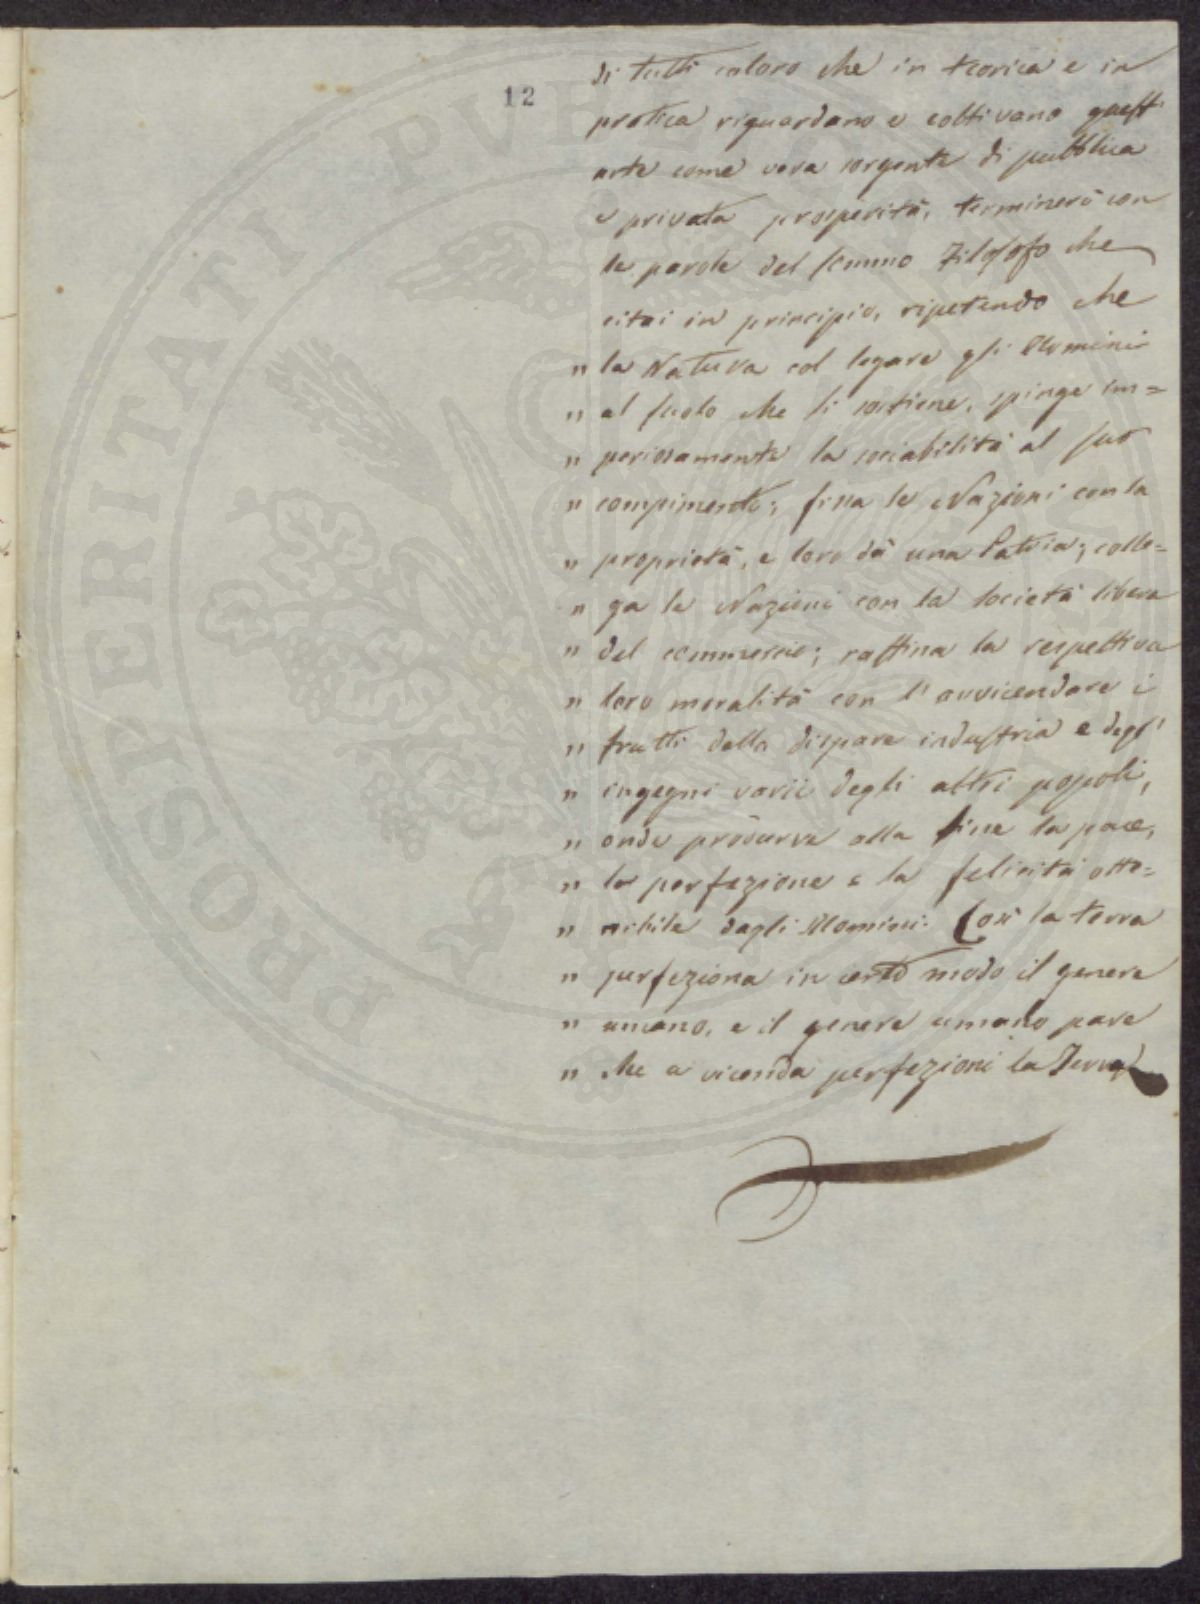 12
di tutti coloro che in teorica e in
pratica riguardano e coltivano quest'
arte come vera sorgente di pubblica
e privata prosperità, terminerò con
le parole del sommo Filosofo che
citai in principio, ripetendo che
" la Natura col legare gli Uomini
" al suolo che li sostiene, spinge im=
" periosamente la sociabilità al suo
" compimento; fissa le Nazioni con la
" proprietà, e loro dà una Patria; colle=
" ga le Nazioni con la società libera
" del commercio; raffina la respettiva
" loro moralità con l'avvicendare i
" frutti della dispare industria e degl'
" ingegni varii degli altri popoli,
" onde produrre alla fine la pace,
" la perfezione e la felicità otte=
" nibile dagli Uomini. Così la terra
" perfeziona in certo modo il genere
" umano, e il genere umano pare
" che a vicenda perfezioni la Terra
PROSPERITATI PVBLICAE